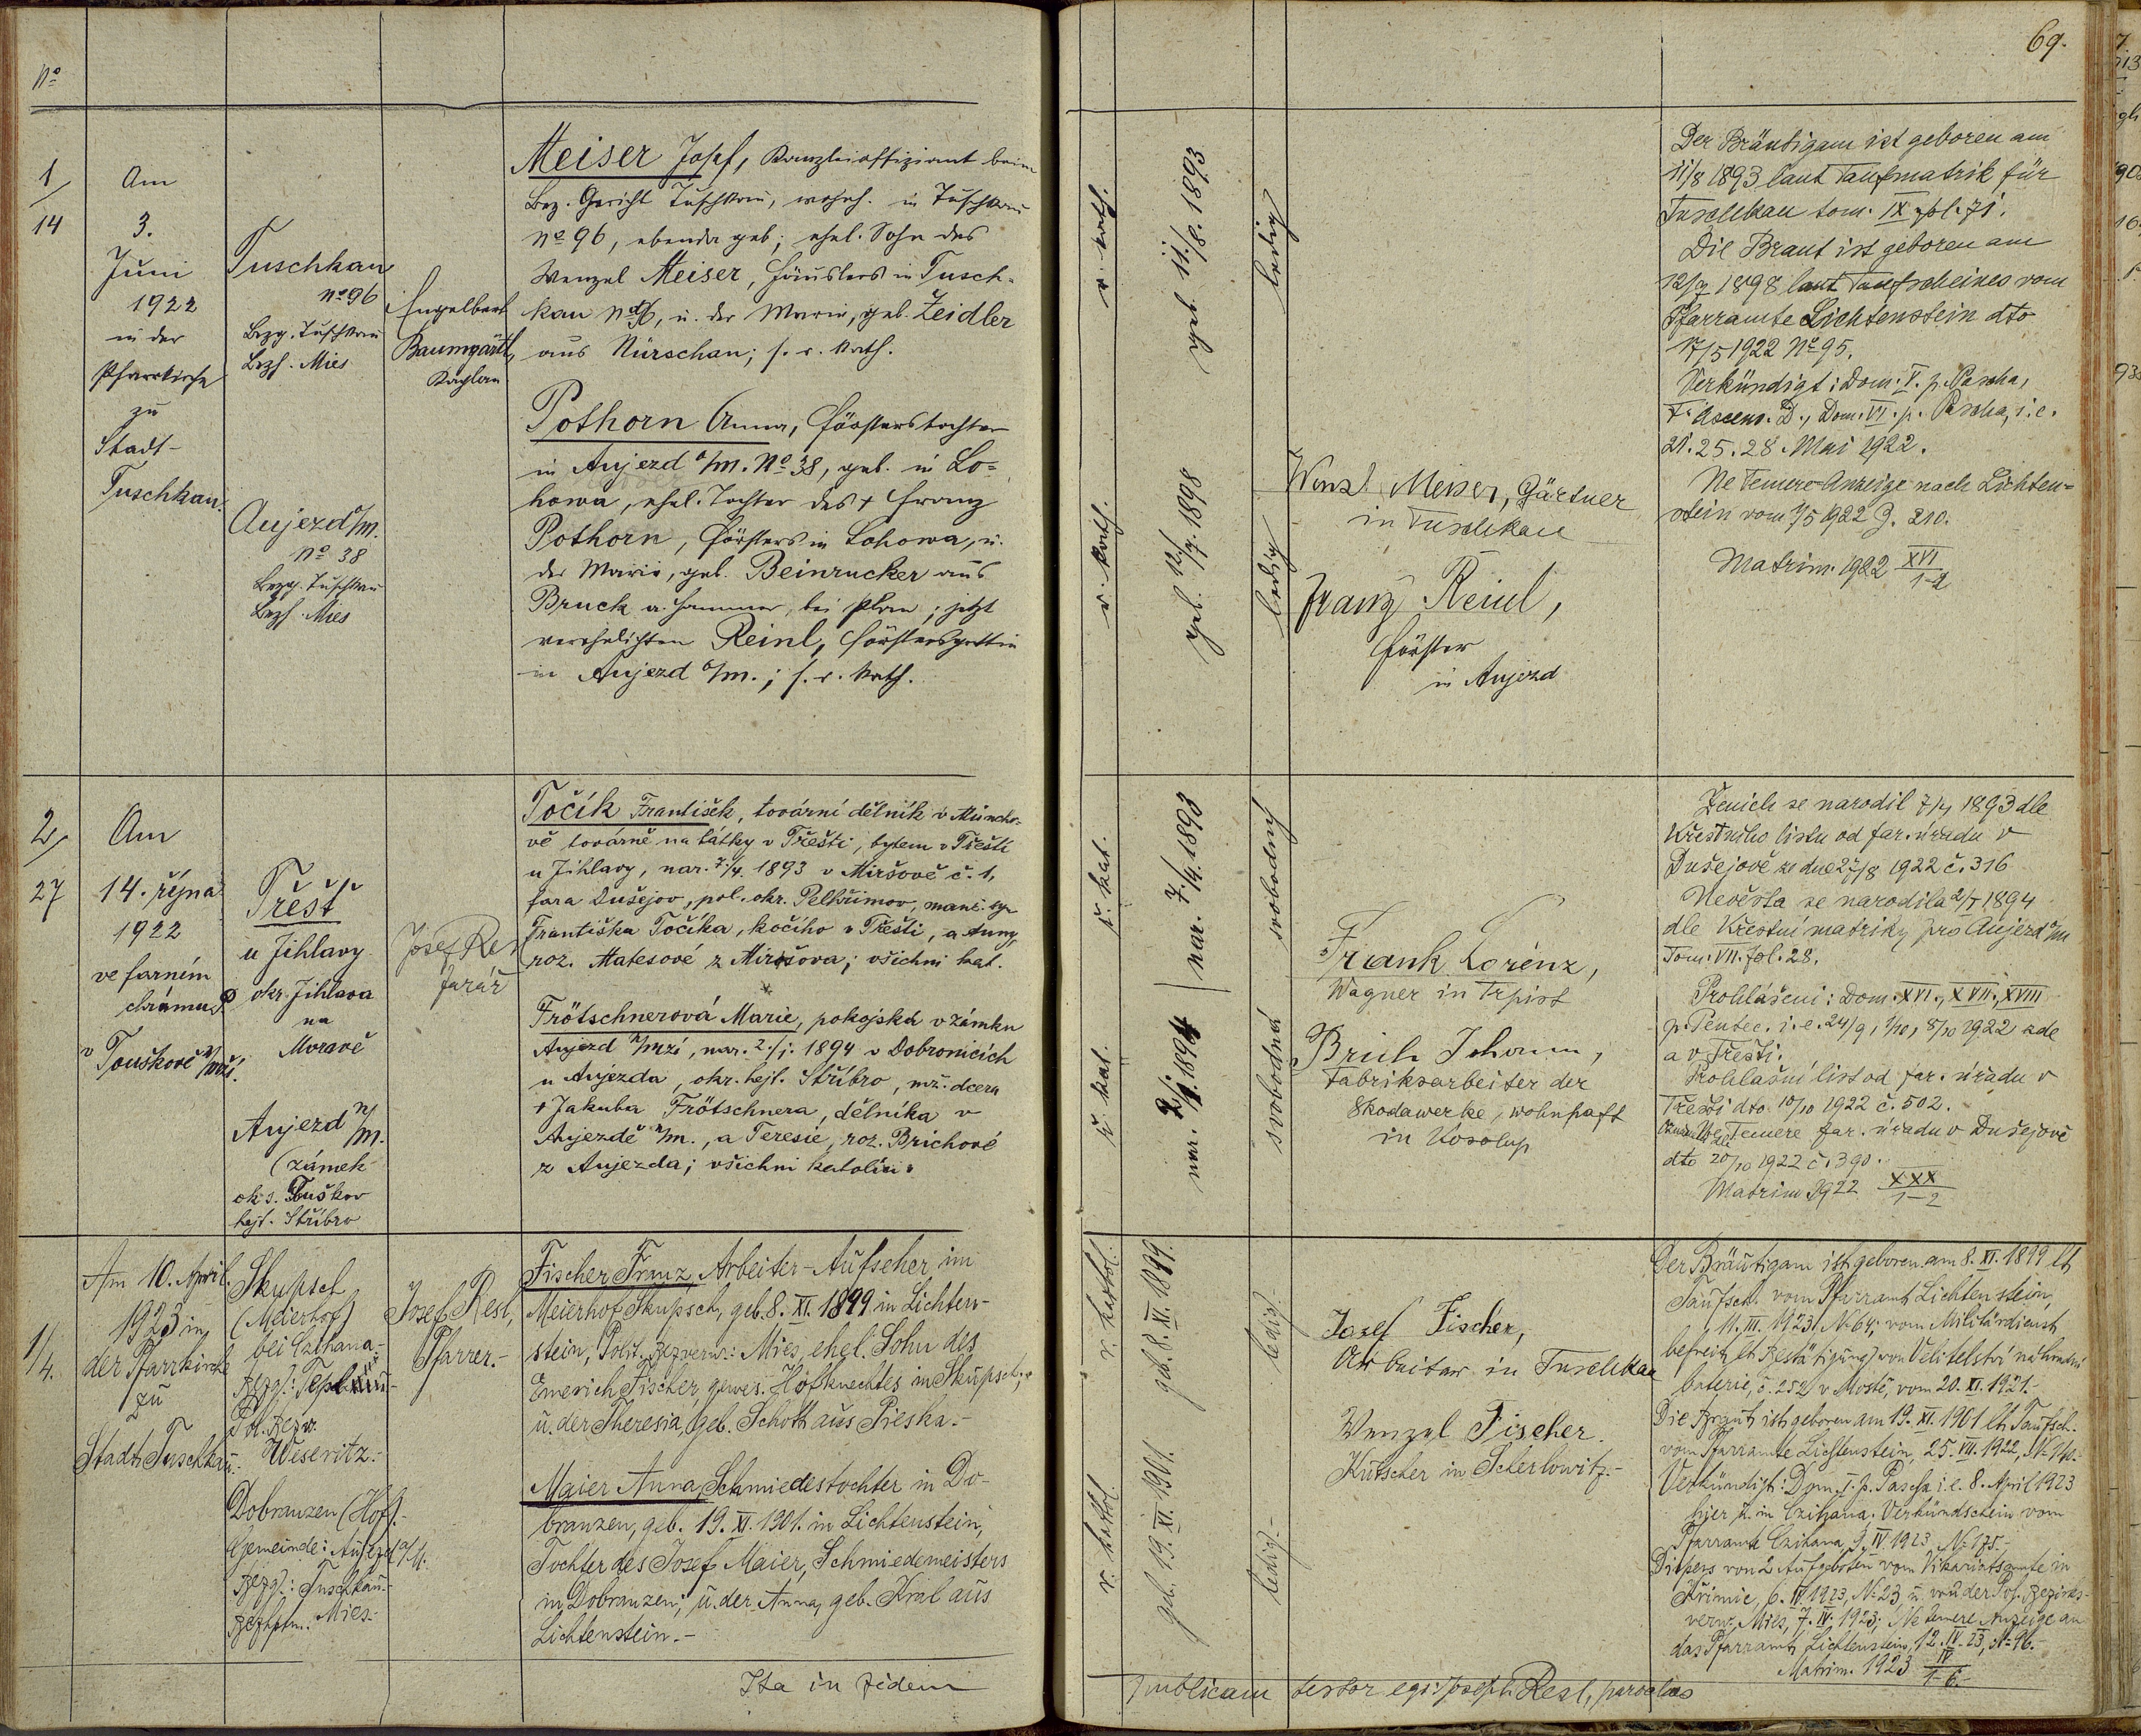 69.
No
1/
14
Am
3.
Juni
1922
in der
Pfarrkirche
zu
Stadt-
Tuschkau.
Tuschkau
No 96
Bezg. Tuschkau
Bezh. Mies
Aujezd o/M.
No 38
Bezg. Tuschkau
Bezh. Mies
Engelbert
Baumgärtl,
Kaplan
Meiser Josef, Kanzleioffiziant beim
Bez. Gericht Tuschkau, wohnh. in Tuschkau
No 96, ebenda geb; ehel. Sohn des
Wenzel Meiser, Häuslers in Tusch-
kau No 96, u. der Marie, geb. Zeidler
aus Nürschan; s. r. kath.
Pothorn Anna, Försterstochter
in Aujezd o/M. No 38, geb. in Lo-
howa, ehel. Tochter des + Franz
Pothorn, Försters in Lohowa, u.
der Marie, geb. Beinrucker aus
Bruck a. Hammer, bei Plan; jetzt
verehelichten Reinl, Förstersgattin
in Aujezd o/M.; s. r. kath.
r. kath.
geb. 11./8. 1893
ledig
r. kath.
geb. 12/7. 1898
ledig
Wenzl Meiser, Gärtner
in Tuschkau
Franz Reinl,
Förster
in Aujezd
Der Bräutigam ist geboren am
11/8 1893 laut Taufmatrik für
Tuschkau tom. IX. fol. 71.
Die Braut ist geboren am
12/7 1898 laut Taufscheines vom
Pfarramte Lichtenstein dto
17/5 1922 No 95.
Verkündigt: Dom. V. p. Pascha,
F. Ascens. D., Dom. VI. p. Pascha, i. e.
21. 25. 28. Mai 1922.
Ne Temere-Anzeige nach Lichten-
stein vom 7/5 1922 Z. 210.
Matrim. 1922 XVI
1-2
2/
27
Am
14. října
1922
ve farním
chrámu P
v Touškově n/Mží.
Třešť
u Jihlavy
okr. Jihlava
na
Moravě
Aujezd n/M.
(zámek
ok. s. Tuškov
hejt. Stříbro
Josef Resl
farář
Točík František, tovární dělník v Müncho-
vě továrně na látky v Třešti, bytem v Třešti
u Jihlavy, nar. 7./4. 1893 v Miršově č. 1,
fara Dušejov, pol. okr. Pelhřimov, manž. syn
Františka Točíka, kočího v Třešti, a Anny,
roz. Matesové z Mirošova; všichni kat.
Frötschnerová Marie, pokojská v zámku
Aujezd n/Mží, nar. 2./j. 1894 v Dobronicích
u Aujezda, okr. hejt. Stříbro, mž. dcera
+ Jakuba Frötschnera, dělníka v
Aujezdě n/M., a Teresie, roz. Brichové
z Aujezda; všichni katolíci.
ř. kat.
nar. 7./4. 1893
svobodný
ř. kat.
nar. 2/1. 1894
svobodná
Frank Lorenz,
Wagner in Trpist
Brich Johann,
Fabriksarbeiter der
Skodawerke, wohnhaft
in Kosolup
Ženich se narodil 7/4 1893 dle
Křestního listu od far. úřadu v
Dušejově ze dne 27/8 1922 č. 316
Nevěsta se narodila 2/1 1894
dle Křestní matriky pro Aujezd n/M
Tom. VII. fol. 28.
Prohlášeni: Dom. XVI., XVII., XVIII
p. Pentec. i. e. 24/9, 1/10, 8/10 1922 zde
a v Třešti.
Prohlašní list od far. úřadu v
Třešti dto 10/10 1922 č. 502.
Ne Temere far. úřadu v Dušejově
dto 20/10 1922 č. 390.
Matrim 1922 XXX
1-2
1/
4.
Am 10. April
1923 in
der Pfarrkirche
zu
Stadt Tuschkau.-
Skupsch
(Meierhof)
bei Czihana.-
Bezg.: Tepl
Pol. Bezw.
Weseritz.-
Dobranzen (Hof).-
Gemeinde: Aujezd a/M.
Bezg.: Tuschkau.-
Bezhptm. Mies.-
Josef Resl,
Pfarrer.-
Fischer Franz, Arbeiter-Aufseher im
Meierhof Skupsch, geb. 8. XI. 1899 in Lichten-
stein, Polit. Bezverw.: Mies, ehel. Sohn des
Emerich Fischer, gewes. Hofknechtes in Skupsch,
u. der Theresia, geb. Schott aus Pieska.-
Maier Anna, Schmiedestochter in Do-
branzen, geb. 19. XI. 1901. in Lichtenstein,
Tochter des Josef Maier, Schmiedemeisters
in Dobranzen, u. der Anna, geb. Kral aus
Lichtenstein.-
r. kathol.
geb. 8. XI. 1899.
ledig.
r. kathol.
geb. 19. XI. 1901.
ledig.-
Josef Fischer,
Arbeiter in Tuschkau
Wenzel Fischer.
Kutscher in Scherlowitz.-
Der Bräutigam ist geboren am 8. XI. 1899 lt
Taufsch. vom Pfarramt Lichtenstein,
11. III. 1923. N. 64; vom Militärdienst
befreit lt Bestätigung von Velitelství náhradní
baterie, č. 252 v Mostě, vom 20. XI. 1921.-
Die Braut ist geboren am 19. XI. 1901 lt Taufsch.
vom Pfarramte Lichtenstein, 25. VII. 1922,
Verkündigt: Dom. I. p. Pascha i. e. 8. April 1923
hier u. in Czihana. Verkündschein vom
Pfarramt Czihana, 9. IV. 1923, N: 175.-
Dispens von 2 Aufgeboten vom Vikariatsamte in
Křimic, 6. IV. 1923, N: 23, u. von der Pol. Bezirks-
verw. Mies, 7. IV. 1923; Ne temere Anzeige an
das Pfarramt Lichtenstein, 12. IV. 23, N: 96.-
Matrim. 1923 IV
1-6.-
Ita in fidem publicam testor ego Joseph Resl, parochus